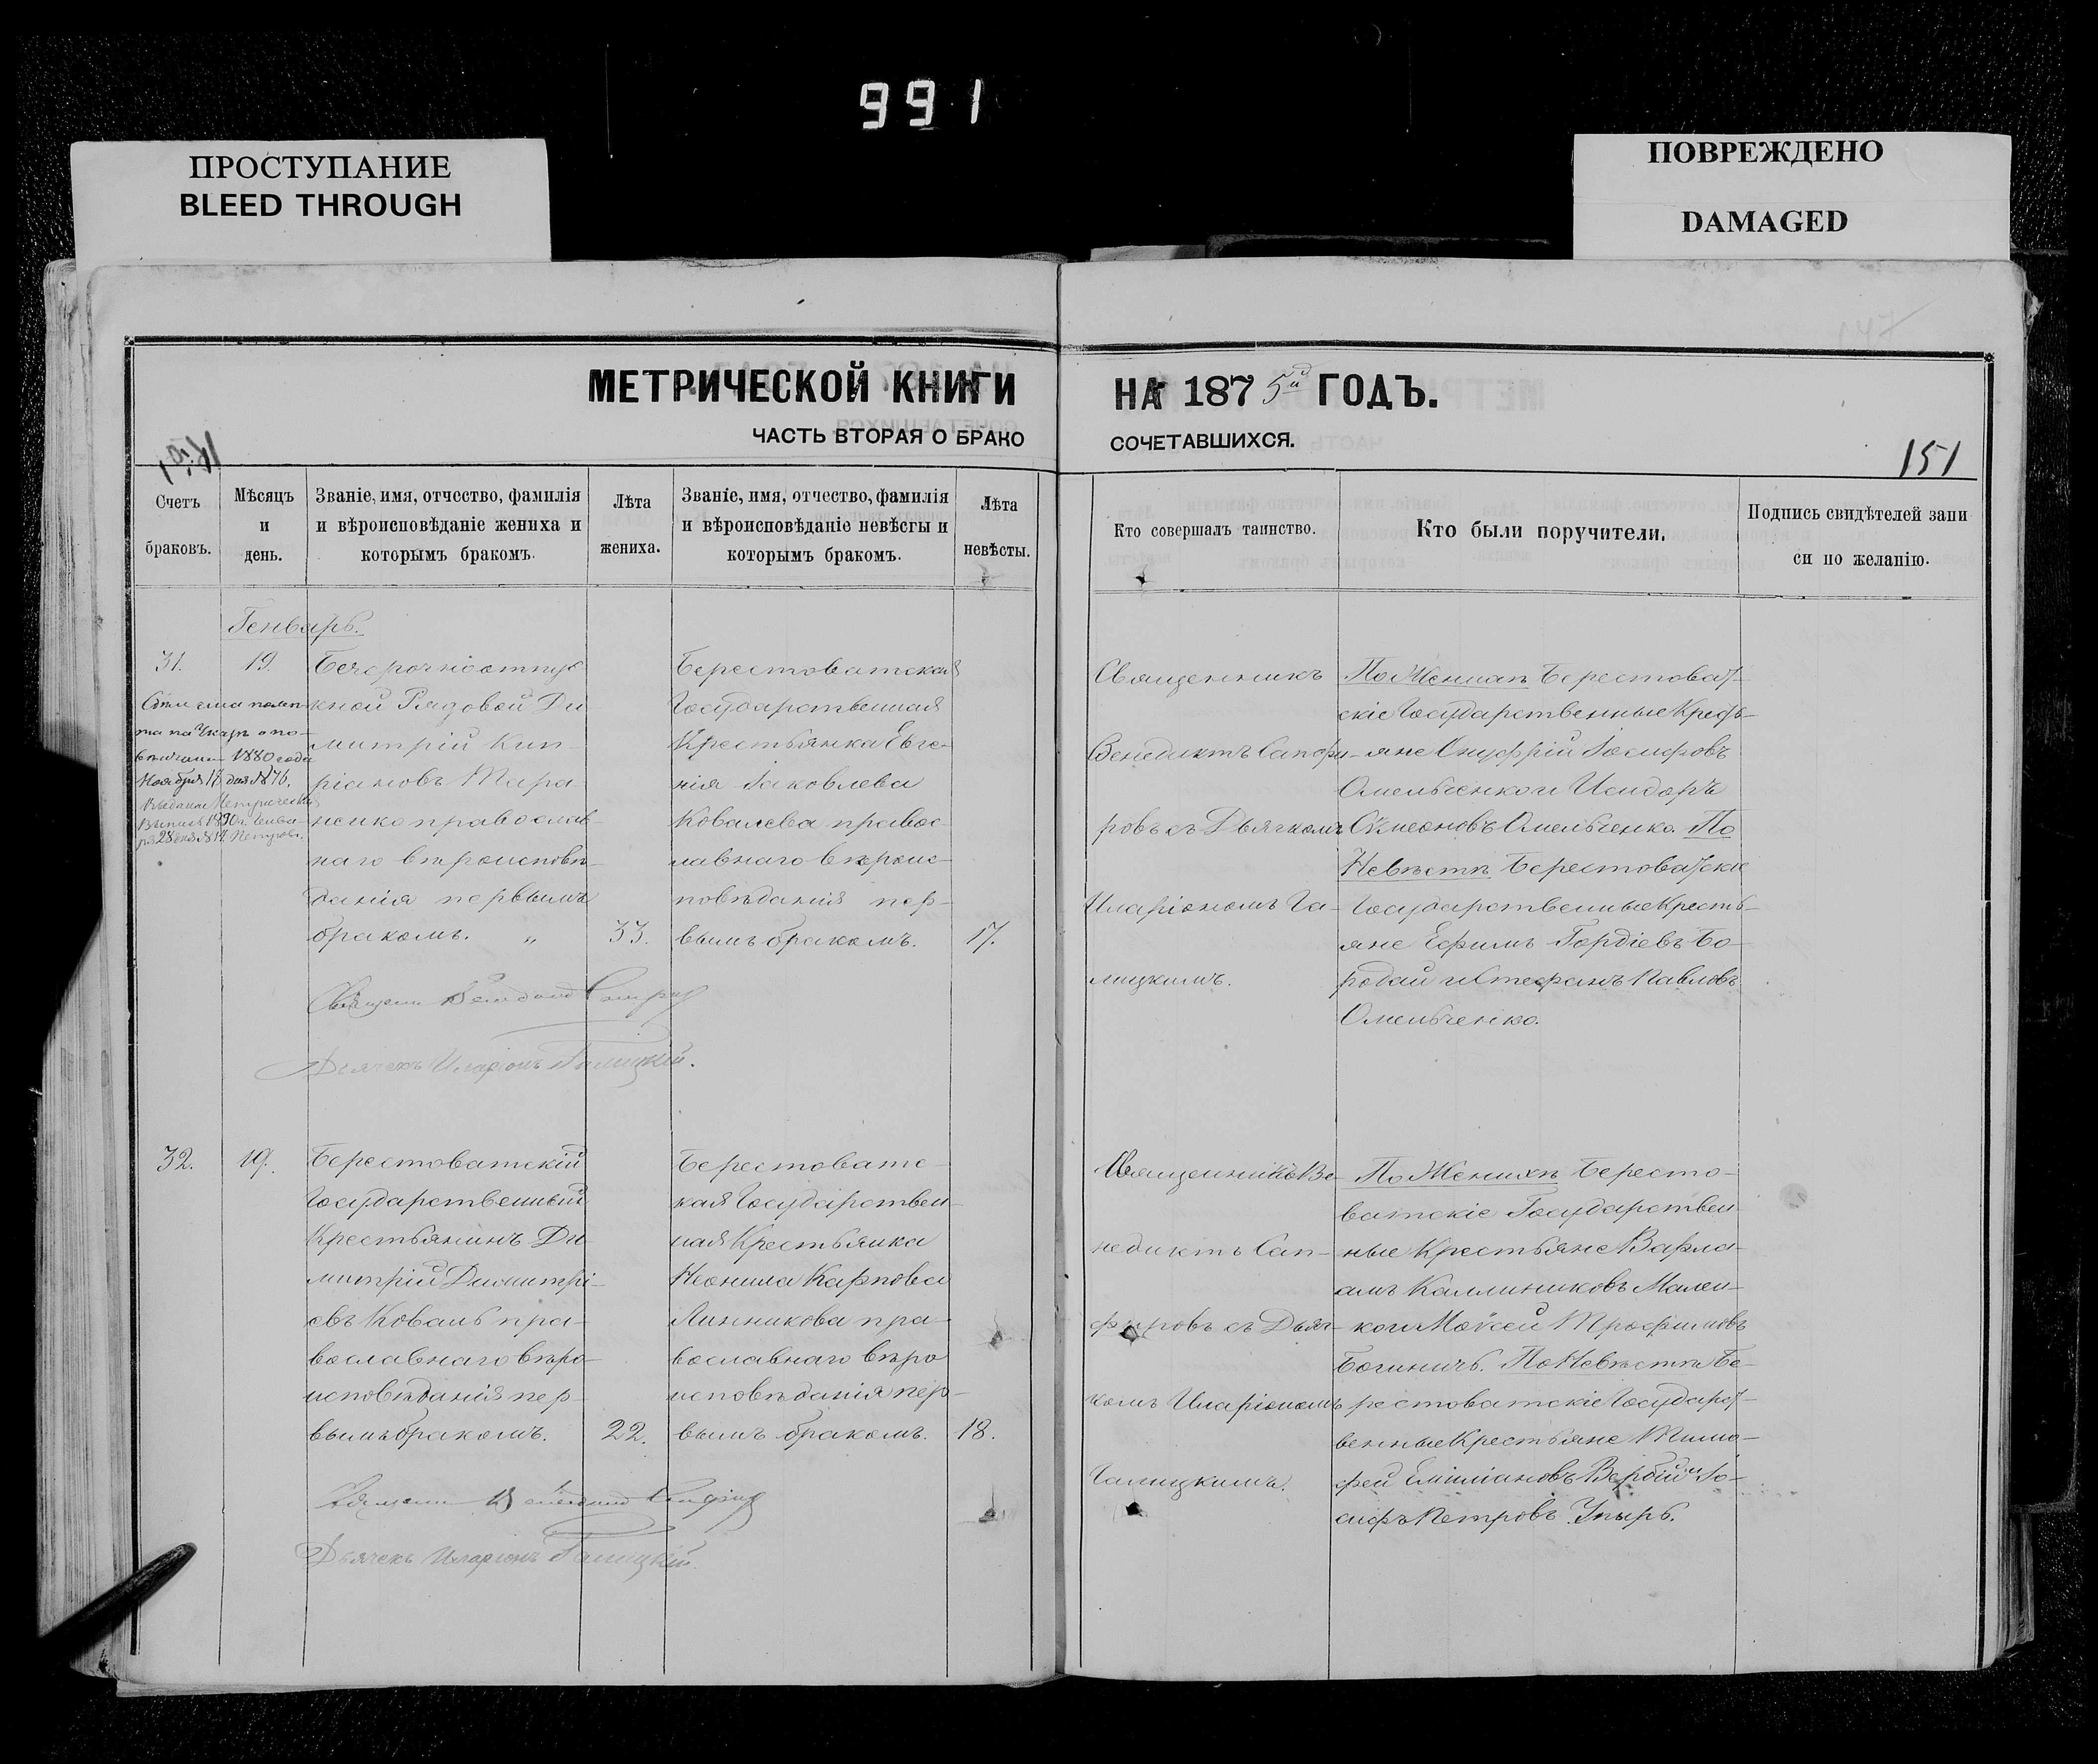 991
ПРОСТУПАНИЕ
BLEED THROUGH
ПОВРЕЖДЕНО
DAMAGED
МЕТРИЧЕСКОЙ КНИГИ
НА 1875й ГОДЪ.
ЧАСТЬ ВТОРАЯ О БРАКО
СОЧЕТАВШИХСЯ.
151
Счетъ
браковъ.
Мѣсяцъ
и
день.
Званіе, имя, отчество, фамилія
и вѣроисповѣданіе жениха и
которымъ бракомъ.
Лѣта
жениха.
Званіе, имя, отчество, фамилія
и вѣроисповѣданіе невѣсты и
которымъ бракомъ.
Лѣта
невѣсты.
Кто совершалъ таинство.
Кто были поручители.
Подпись свидѣтелей запи
си по желанію.
Генварь.
31.
19.
1880 года
Ноября 17 дня №76.
Выдана Метрическая
Безсрочноотпус
кной Рядовой Ди
митрій Кип-
ріановъ Тара-
ненко православ-
наго вѣроисповѣ-
данія первымъ
бракомъ. „
33.
Берестоватская
Государственная
Крестьянка Евге-
нія Іаковлева
Ковалева правос-
лавнаго вѣроис-
повѣданія пер-
вымъ бракомъ.
17.
Священникъ
Венедиктъ Сапфи-
ровъ съ Дьячкомъ
Иларіономъ Га-
лицкимъ.
По Женихѣ Берестоват-
скіе Государственные Кресть-
яне Онуфрій Іосифовъ
Омельченко и Исидоръ
Сѵмеоновъ Омельченко. По
Невѣстѣ Берестоватскіе
Государственные Кресть-
яне Ефимъ Гордіевъ Бо-
родай и Стефанъ Павловъ
Омельченко.
Священ Венедикт Сапфир
Дьячекъ Иларіонъ Галицкій.
32.
19.
Берестоватскій
Государственный
Крестьянинъ Ди
митрій Димитрі-
евъ Коваль пра-
вославнаго вѣро-
исповѣданія пер-
вымъ бракомъ.
22.
Берестоватс-
кая Государствен-
ная Крестьянка
Неонила Карпова
Линникова пра-
вославнаго вѣро
исповѣданія пер-
вымъ бракомъ.
18.
Священникъ Ве-
недиктъ Сап-
фировъ съ Дьяч-
комъ Иларіономъ
Галицкимъ.
По Женихѣ Бересто-
ватскіе Государствен
ные Крестьяне Варла-
амъ Каллиниковъ Мален-
ко и Моѵсей Трофимовъ
Богиничъ. По Невѣстѣ Бе-
рестоватскіе Государст-
венные Крестьяне Тимо-
фей Емиліановъ Вербій и Іо-
сифъ Петровъ Упырь.
Священ Венедикт Сапфир
Дьячекъ Иларіонъ Галицкій.